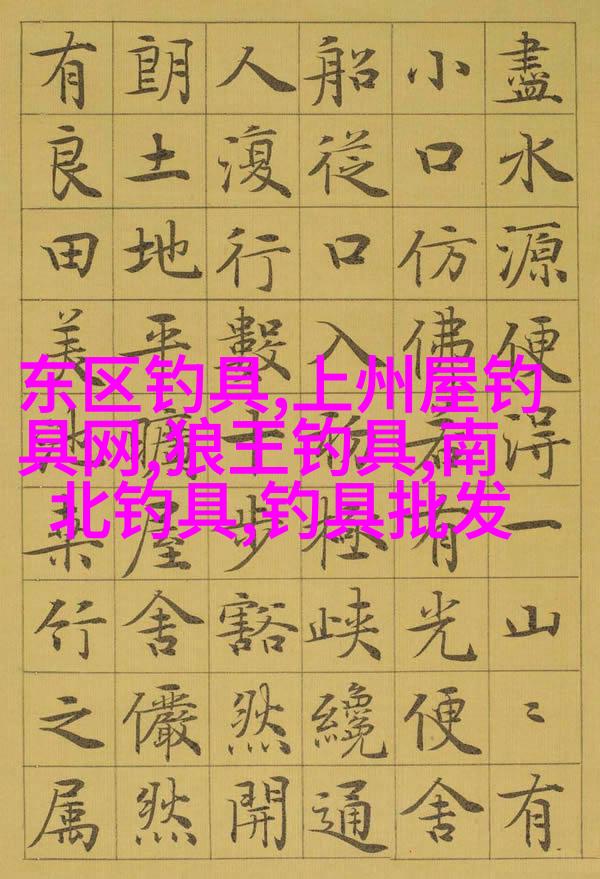 东区钓具,上州屋钓
具网,狼王钓具,南
北钓具,钓具批发
盡水源便淂一山〻有
小口仿佛若有光便舍
船從口入初極峡纔通
人復行數十步豁然開
朗土地平曠屋舍儼然
有良田美池桑竹之属